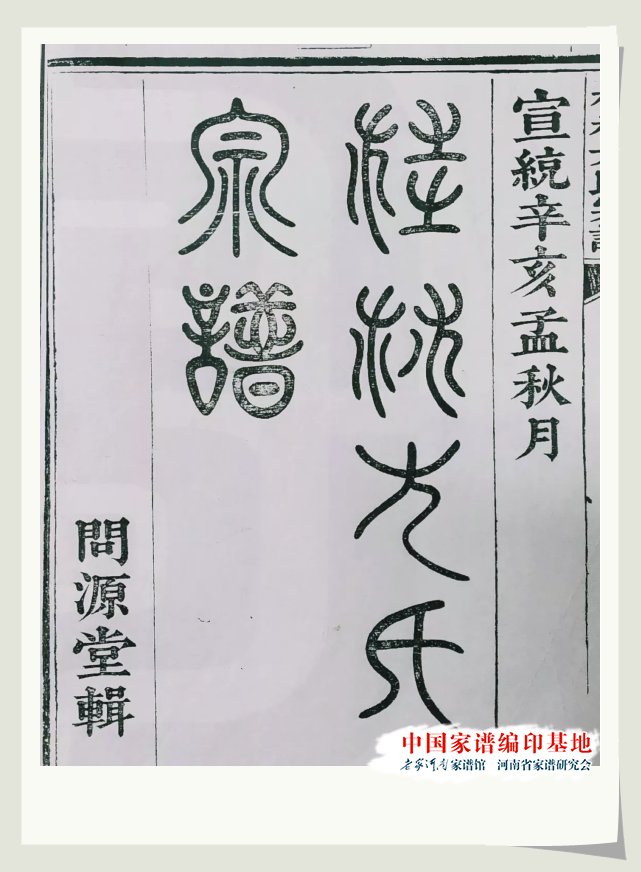 宣統辛亥孟秋月
桂林方氏
宗譜
問源堂輯
中国家谱编印基地
老家河南家谱馆 河南省家谱研究会